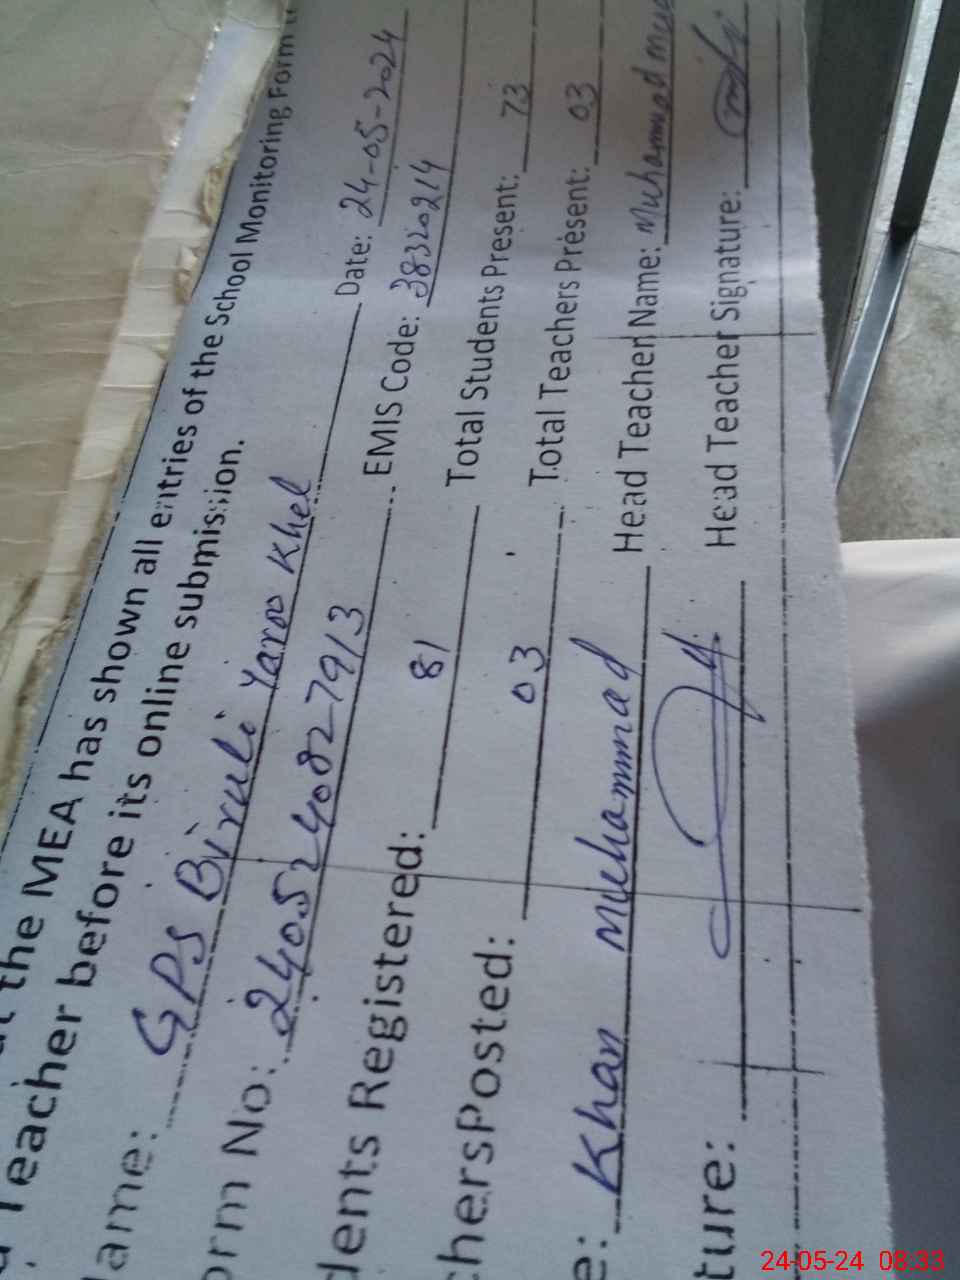 the MEA has shown all entries of the School Monitoring Form
Teacher before its online submission.
ame: GPS Biruli Yaroo Khel Date: 24-05-2024
orm No: 2405240827913 EMIS Code: 38320214
dents Registered: 81 Total Students Present: 73
chersPosted: 03 Total Teachers Present: 03
e: Khan Muhammad Head Teacher Name: Muhammad
ture: Head Teacher Signature:
24-05-24 08:33